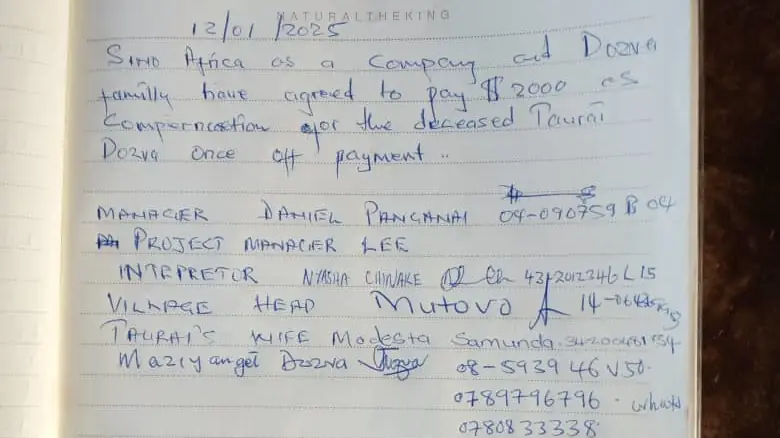 NATURALTHEKING
12/01/2025
Sino Africa as a Company and Dozva
familly have agreed to pay $2000 as
Comperncation for the deceased Taurai
Dozva once off payment..
MANAGER DANIEL PANGANAI 04-090759 B 04
PROJECT MANAGER LEE
INTEPRETOR NYASHA CHINAKE 43-2012346 L 15
VILLAGE HEAD Mutovo
TAURAI'S WIFE Modesta Samunda
Maziyangei Dozva 08-593946 V 50.
0789796796 . whats
0780833338.